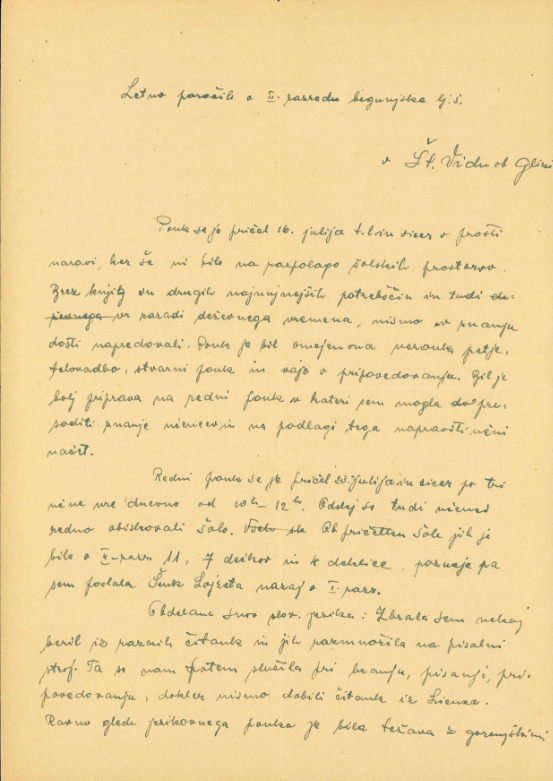 Letno poročilo o II. razredu begunjska lj. š.
v Št. Vidu ob Glini
Pouk se je pričel 16. julija t. l. in sicer v prosti
naravi, ker še ni bilo na razpolago šolskih prostorov.
Brez knjig in drugih najnujnejših potrebščin in tudi
zaradi deževnega vremena, nismo v znanju
dosti napredovali. Pouk je bil omejen na verouk, petje,
telovadbo, stvarni pouk in vaje v pripovedovanju. Bil je
bolj priprava na redni pouk v kateri sem mogla dobro pre-
soditi znanje učencev in na podlagi tega napraviti učni
načrt.
Redni pouk se je pričel 23. julija in sicer po tri
učne ure dnevno od 10h - 12h. Odslej so tudi učenci
redno obiskovali šolo. Ob pričetku šole jih je
bilo v II. razr. 11, 7 dečkov in 4 deklice, pozneje pa
sem poslala Šenk Lojzeta nazaj v I. razr.
Obdelana snov slov. jezika: Zbrala sem nekaj
beril iz raznih čitank in jih razmnožila na pisalni
stroj. Ta so nam potem služila pri branju, pisanju, pri-
povedovanju, dokler nismo dobili čitank iz Lienza.
Ravno glede jezikovnega pouka je bila težava z gorenjskimi